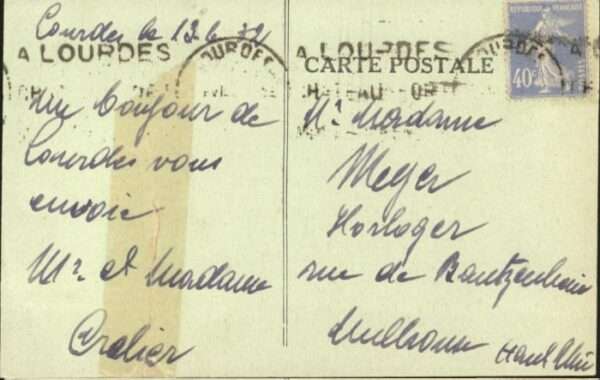 Lourdes le 13.6.32
A LOURDES
Un bonjour de
Lourdes vous
envoie
Mr. et Madame
A LOURDES
CARTE POSTALE
RÉPUBLIQUE FRANÇAISE
40c
LOURDES
Mr. Madame
Meyer
Horloger
rue de Bantzenheim
Mulhouse Haut Rhin